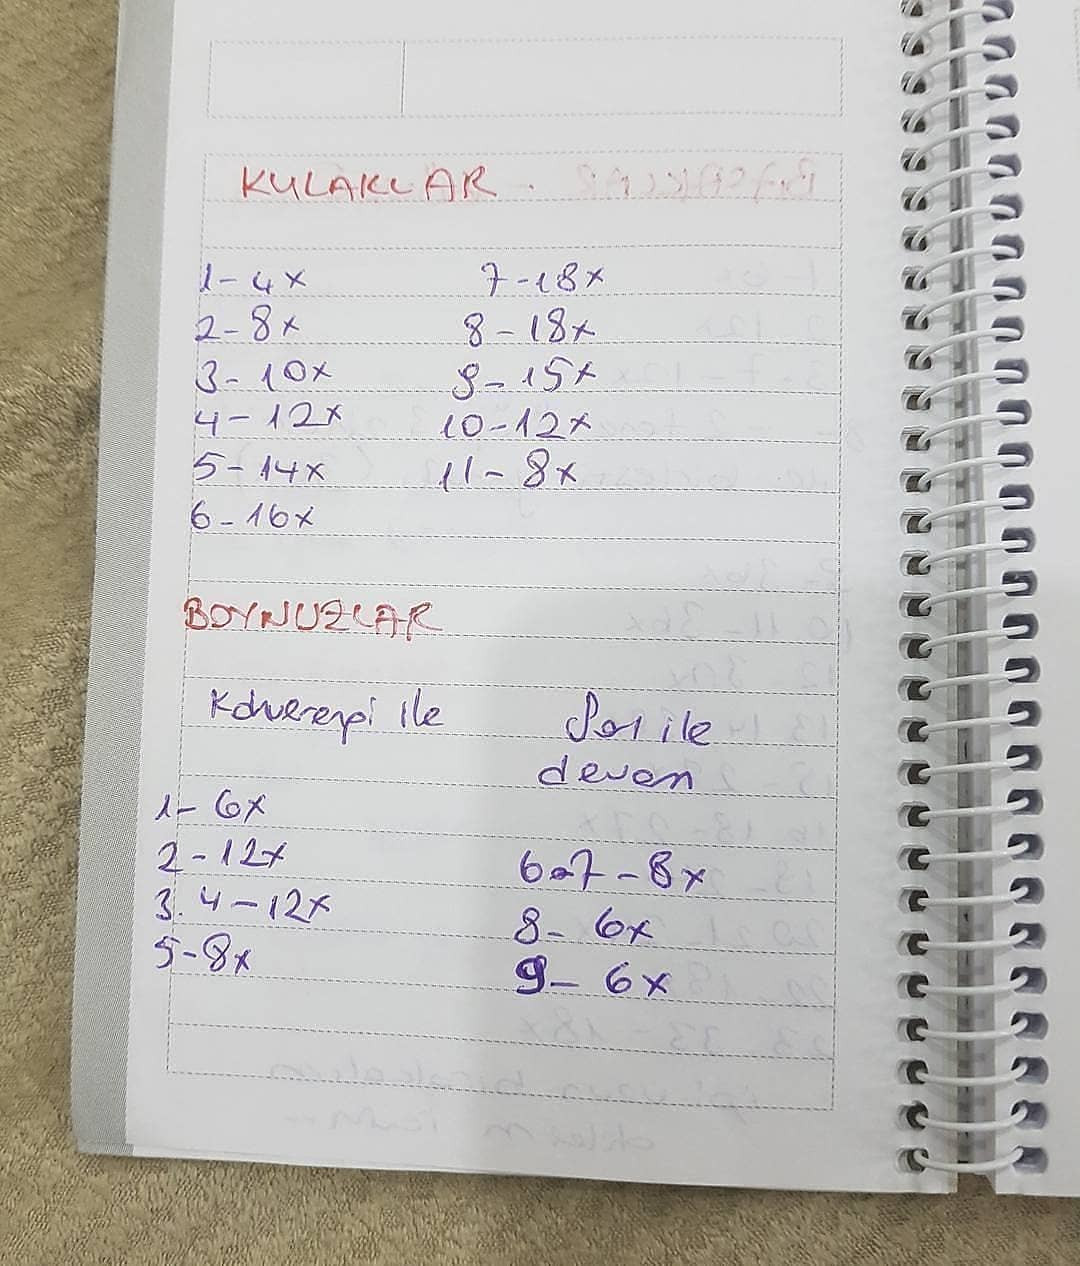 KULAKLAR
1-4x
2-8x
3-10x
4-12x
5-14x
6-16x
7-18x
8-18x
9-15x
10-12x
11-8x
BOYNUZLAR
Kahverengi ile
1-6x
2-12x
3.4-12x
5-8x
Sarı ile
devam
6-7-8x
8-6x
9-6x